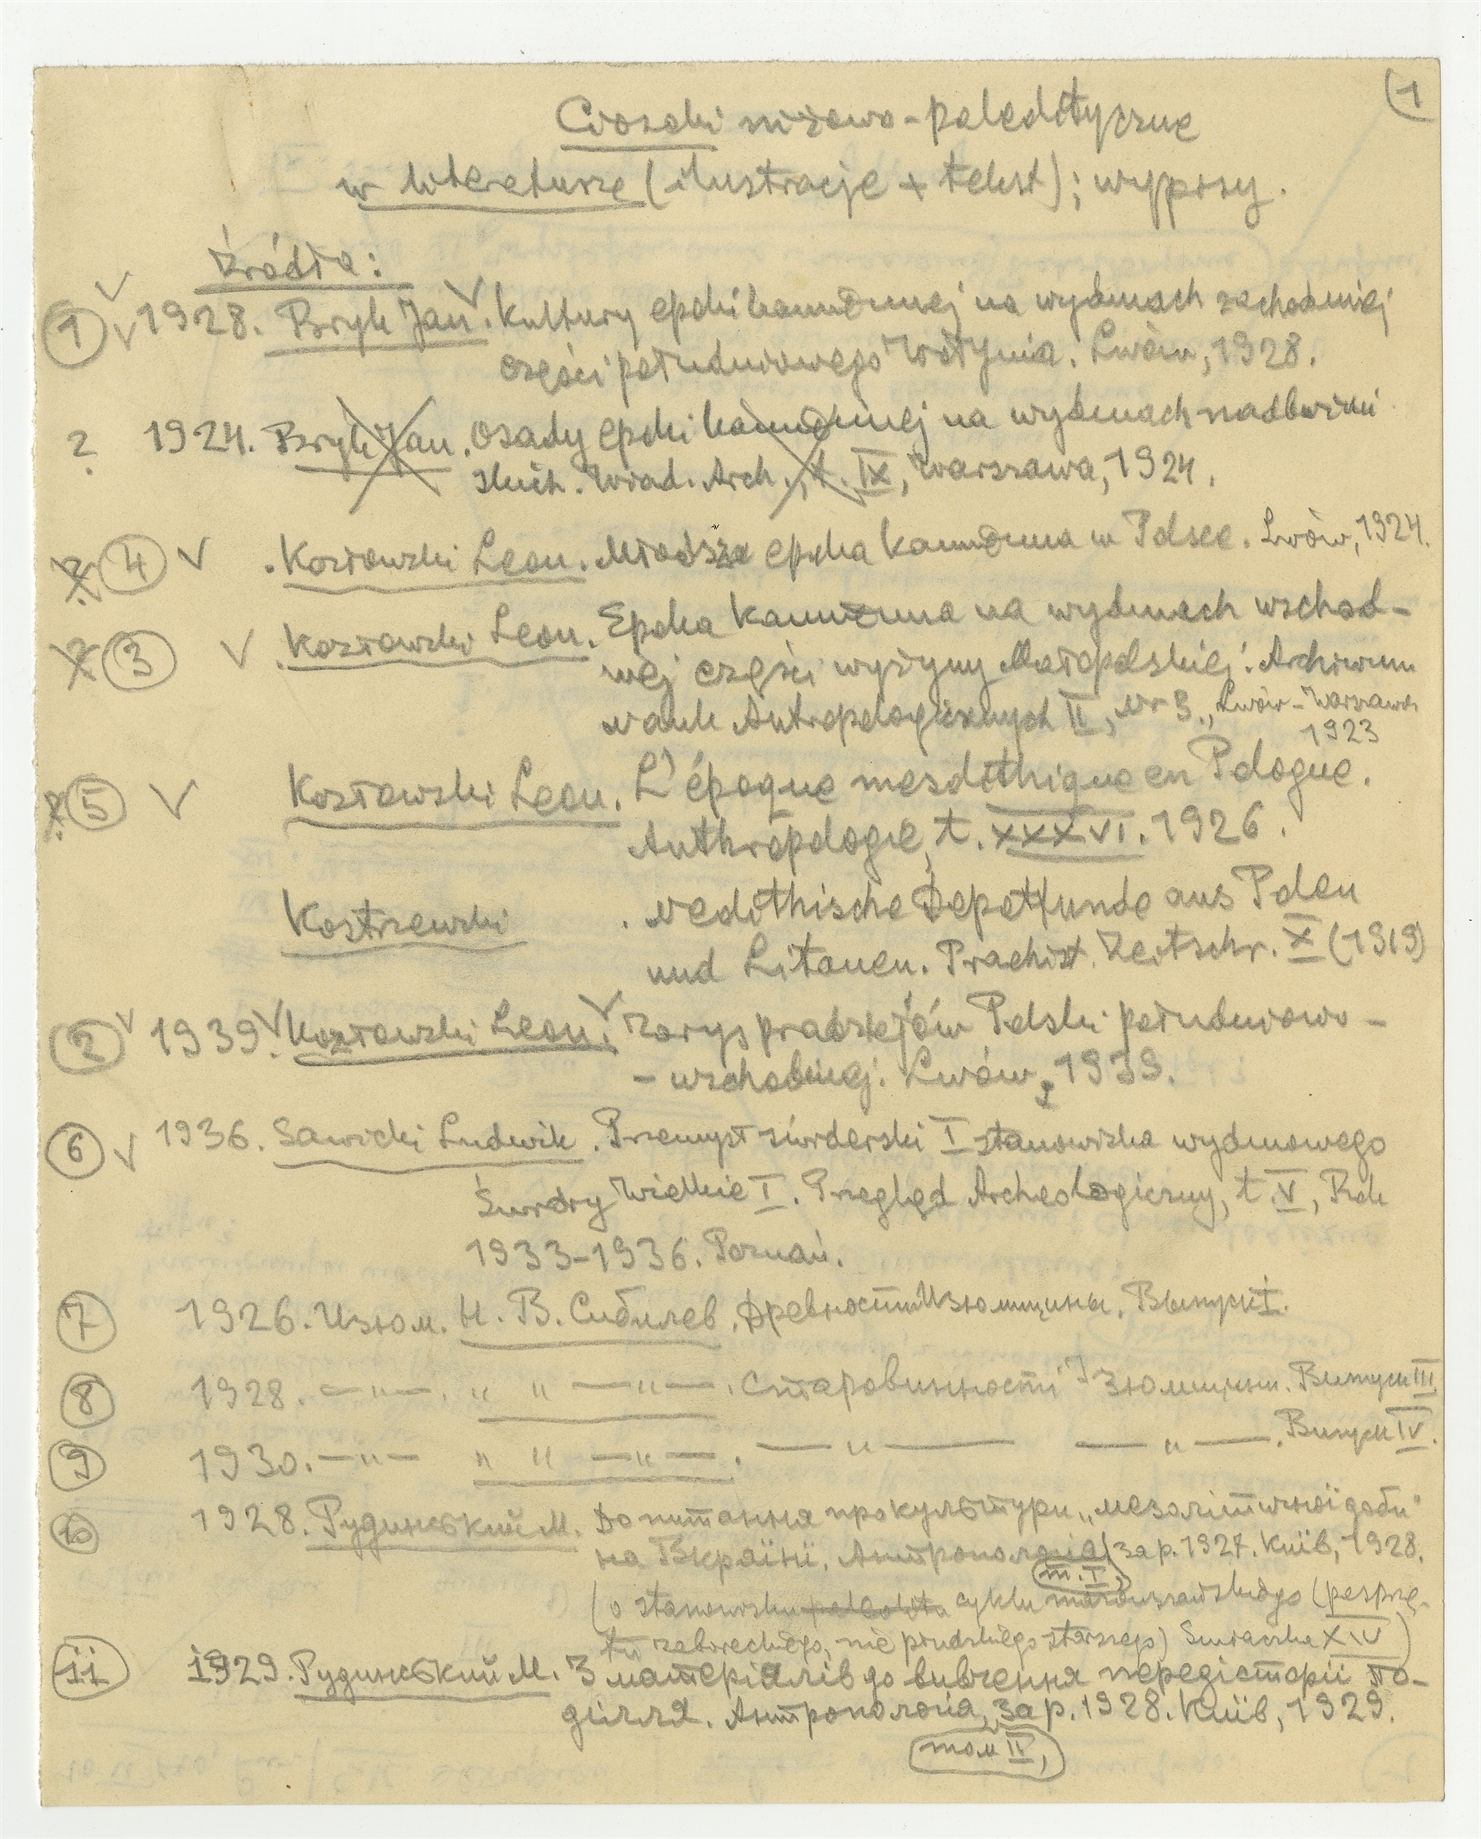 1
Ciosaki niżowo-paleolityczne
w literaturze (ilustracje + tekst); wypisy.
Źródła:
1 1928. Bryk Jan. Kultury epoki kamiennej na wydmach zachodniej
części południowego Wołynia. Lwów, 1928.
? 1924. Bryk Jan. Osady epoki kamiennej na wydmach nadbużni
skich. Wiad. Arch., t. IX, Warszawa, 1924.
? 4 Kozłowski Leon. Młodsza epoka kamienna w Polsce. Lwów, 1924.
? 3 Kozłowski Leon. Epoka kamienna na wydmach wschod-
niej części wyżyny Małopolskiej. Archiwum
Nauk Antropologicznych II, Nr 3., Lwów-Warszawa
1923
? 5 Kozłowski Leon. L'époque mesolithique en Pologne.
Anthropologie, t. XXXVI. 1926.
Kostrzewski . Neolithische Depotfunde aus Polen
und Litauen. Praehist. Zeitschr. X (1919)
2 1939. Kozłowski Leon. Zarys pradziejów Polski południowo-
-wschodniej. Lwów, 1939.
6 1936. Sawicki Ludwik. Przemysł świderski I stanowiska wydmowego
Świdry Wielkie I. Przegląd Archeologiczny, t. V, Rok
1933-1936. Poznań.
7 1926. Изюм. Н. В. Сибилев. Древности Изюмщины. Выпуск I.
8 1928. —"—. " " —"—. Старовинності Iзюмщини. Випуск III
9 1930. —"— " " —"—. —"— —"—. Випуск IV.
10 1928. Рудинський М. До питання про культури „мезолітичної доби"
на Вкраїні. Антропологія за р. 1927. Київ, 1928.
т. I,
(o stanowisku paleolitu cyklu mazowszańskiego (
tu zaboreckiego, nie prudskiego starszego) Smiaczka XIV)
11 1929. Рудинський М. З матеріялів до вивчення передісторії По-
ділля. Антропологія, за р. 1928. Київ, 1929.
том II,